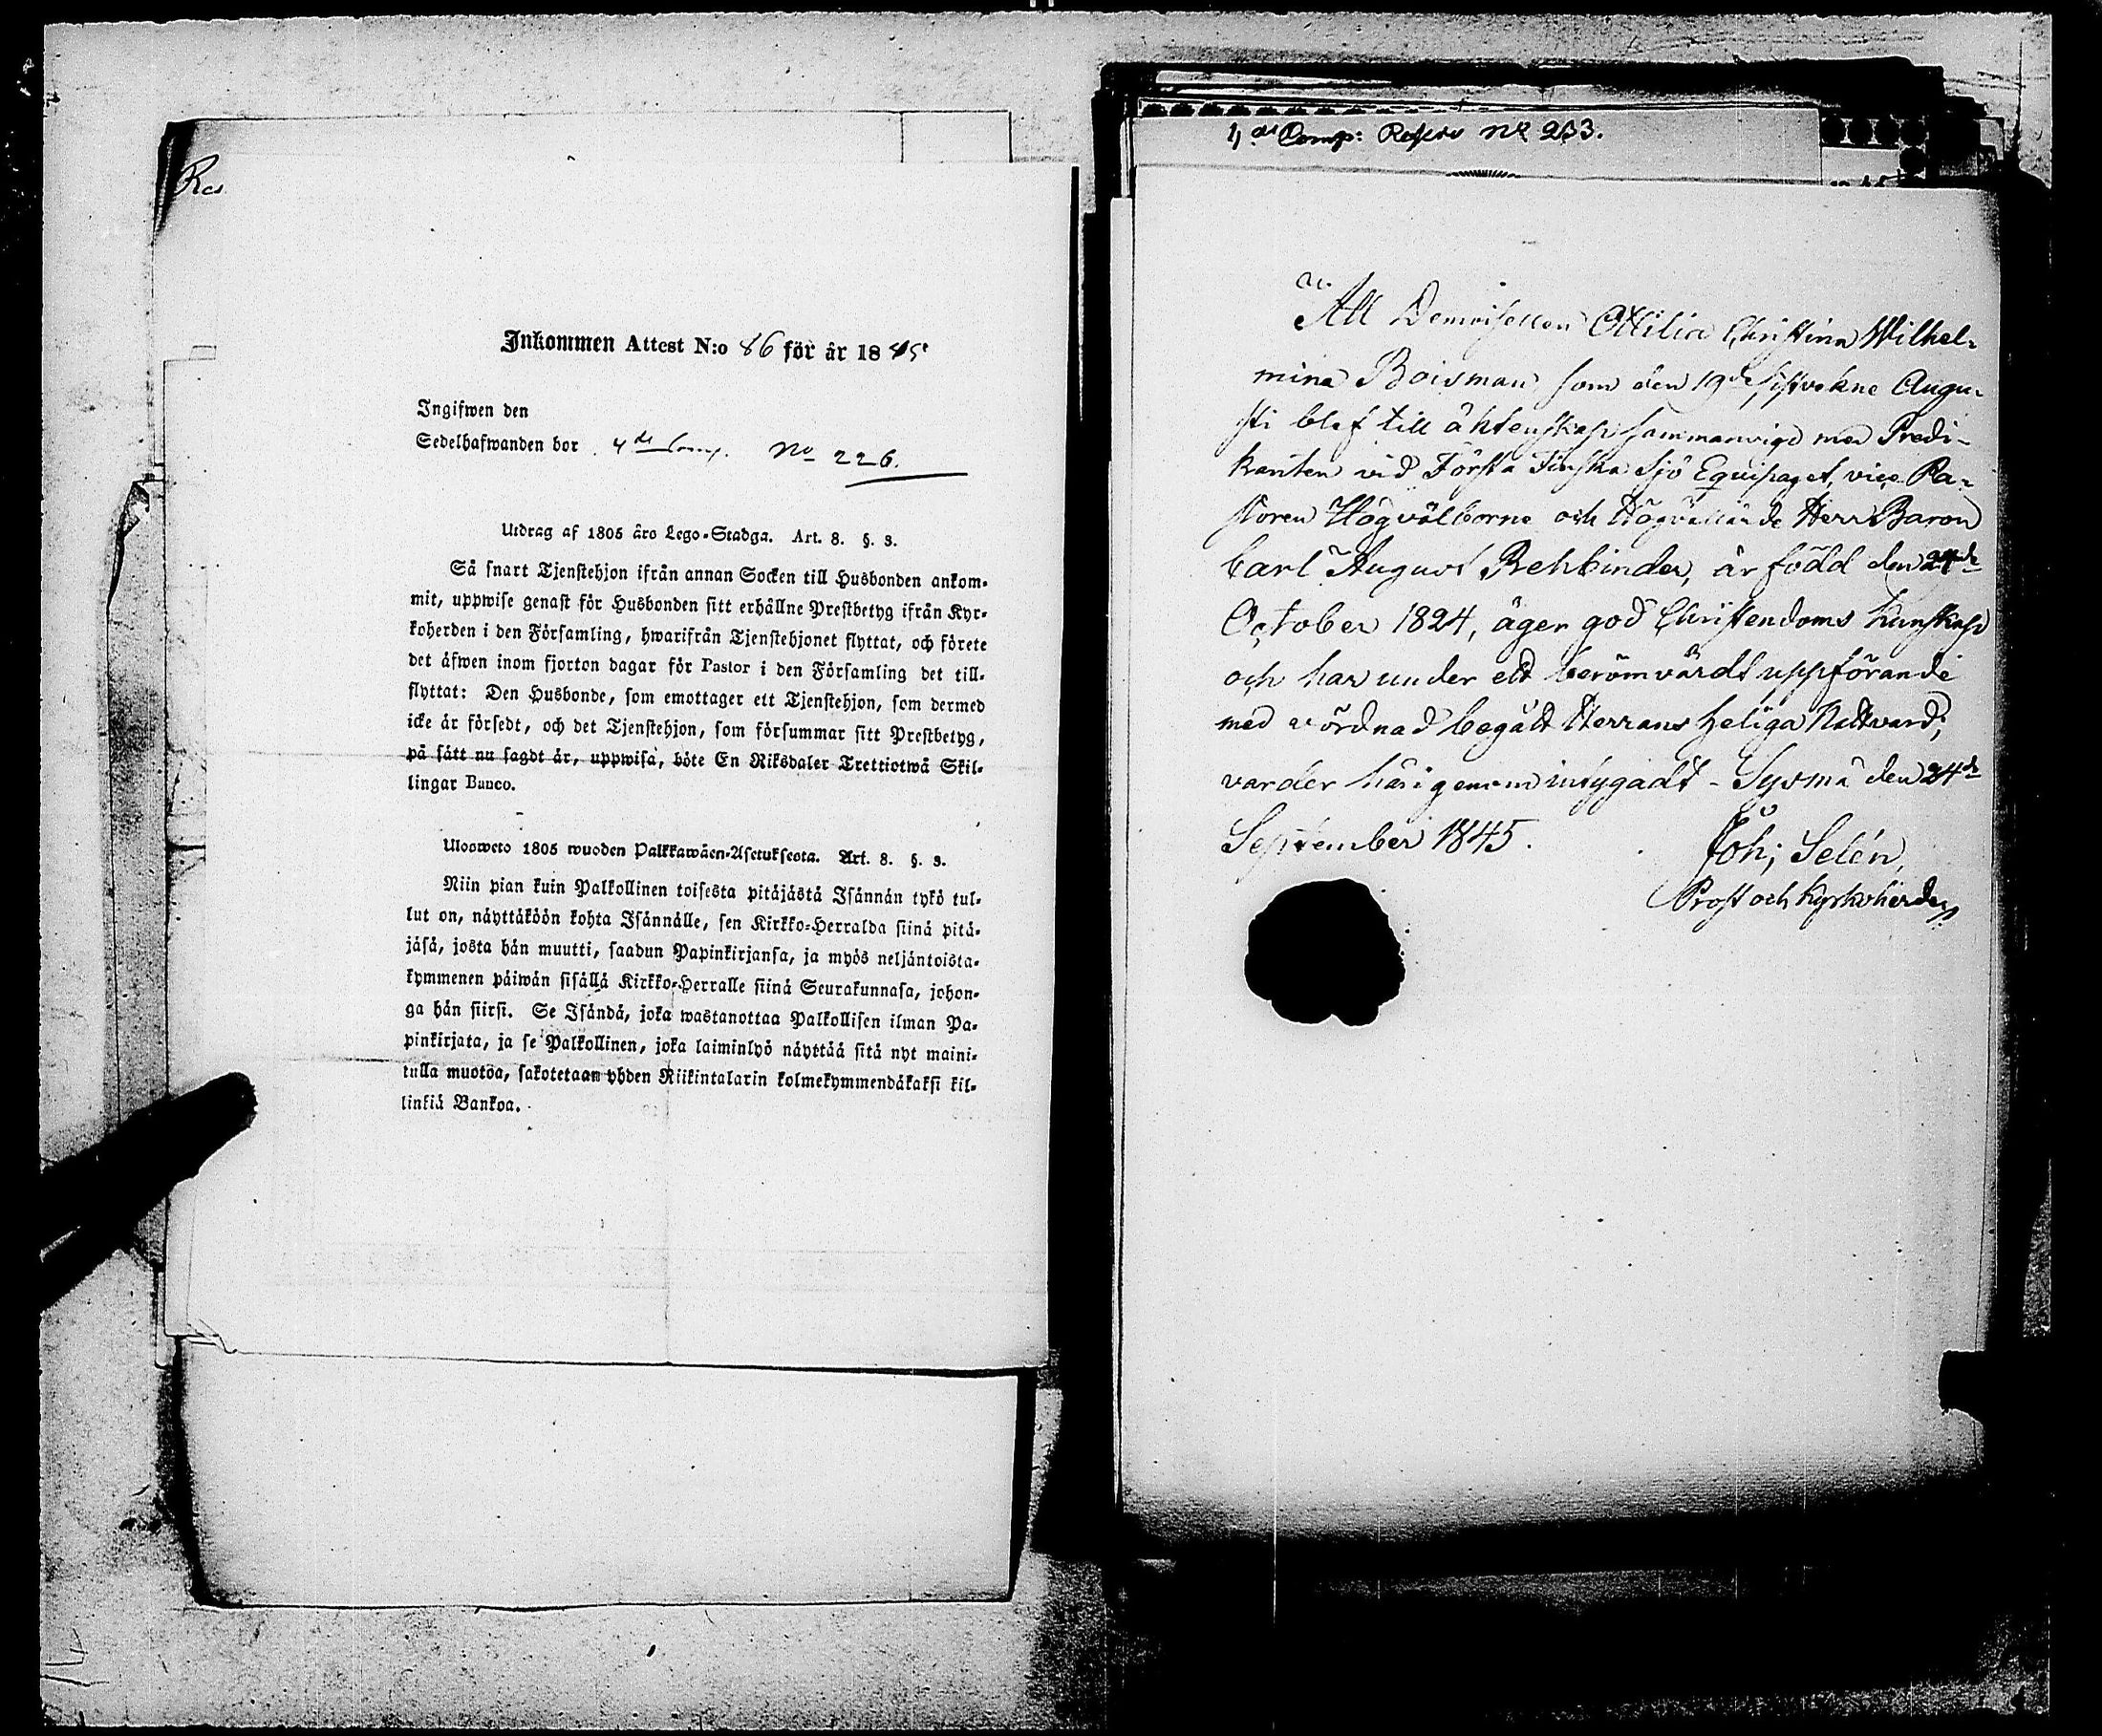 Res
Inkommen Attest N:o 86 för år 1845
Ingifwen den
Sedelhafwanden bor 4de Comp. No 226.
Utdrag af 1805 års Lego-Stadga. Art. 8. §. 3.
Så snart Tjenstehjon ifrån annan Socken till Husbonden ankom-
mit, uppwise genast för Husbonden sitt erhållne Prestbetyg ifrån Kyr-
koherden i den Församling, hwarifrån Tjenstehjonet flyttat, och förete
det äfwen inom fjorton dagar för Pastor i den Församling det till-
flyttat: Den Husbonde, som emottager ett Tjenstehjon, som dermed
icke är försedt, och det Tjenstehjon, som försummar sitt Prestbetyg,
på sätt nu sagdt är, uppwisa, böte En Riksdaler Trettiotwå Skil-
lingar Banco.
Ulosweto 1805 wuoden Palkkawäen-Asetuksesta. Art. 8. §. 3.
Niin pian kuin Palkollinen toisesta pitäjästä Isännän tykö tul-
lut on, näyttäköön kohta Isännälle, sen Kirkko-Herralda siinä pitä-
jäsä, josta hän muutti, saadun Papinkirjansa, ja myös neljäntoista-
kymmenen päiwän sisällä Kirkko-Herralle siinä Seurakunnasa, johon-
ga hän siirsi. Se Isändä, joka wastanottaa Palkollisen ilman Pa-
pinkirjata, ja se Palkollinen, joka laiminlyö näyttää sitä nyt maini-
tulla muotoa, sakotetaan yhden Riikintalarin kolmekymmendäkaksi kil-
linkiä Bankoa.
4de Comp: Reserv No 233.
Att Demoisellen Ottilia Christina Wilhel-
mina Boisman som den 19de sistvekne Augu-
sti blef till ächtenskap sammanvigd med Predi-
kanten vid Första Finska Sjö Equipaget, vice Pa-
storen Högvälborne och Högvällärde Herr Baron
Carl August Rehbinder, är född den 24de
October 1824, äger god Christendoms kunskap
och har under ett berömvärdt uppförande
med vördnad begått Herrans heliga Nattvard;
varder härigenom intygadt - Sysmä den 24de
September 1845.
Joh; Selén,
Prost och Kyrkoherde